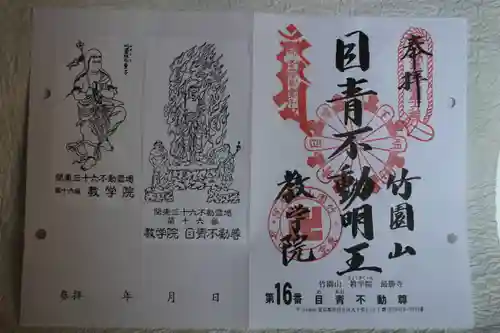 奉拝
竹園山
目青不動明王
教学院
竹園山 教学院 最勝寺
第16番 目青不動尊
関東三十六不動霊場
第十六番
教学院 目青不動尊
関東三十六不動霊場
第十六番 教学院
参拝 年 月 日